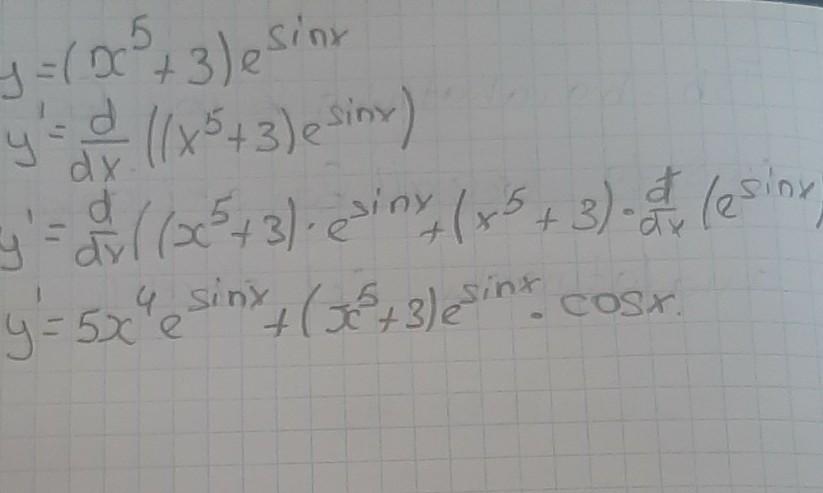 y=(x⁵+3)e^sinx
y'=d/dx((x⁵+3)e^sinx)
y'=d/dx((x⁵+3)·e^sinx+(x⁵+3)·d/dx(e^sinx)
y'=5x⁴e^sinx+(x⁵+3)e^sinx·cosx.